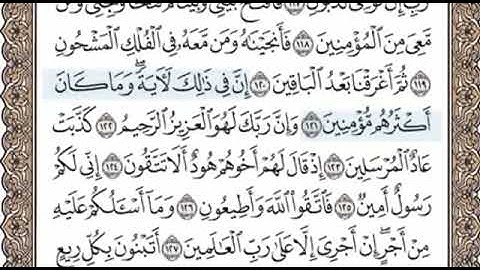 رَبِّ إِنَّ قَوْمِى كَذَّبُونِ ١١٧ فَٱفْتَحْ بَيْنِى وَبَيْنَهُمْ فَتْحًا وَنَجِّنِى وَمَن
مَّعِىَ مِنَ ٱلْمُؤْمِنِينَ ١١٨ فَأَنجَيْنَٰهُ وَمَن مَّعَهُۥ فِى ٱلْفُلْكِ ٱلْمَشْحُونِ
١١٩ ثُمَّ أَغْرَقْنَا بَعْدُ ٱلْبَاقِينَ ١٢٠ إِنَّ فِى ذَٰلِكَ لَءَايَةً ۖ وَمَا كَانَ
أَكْثَرُهُم مُّؤْمِنِينَ ١٢١ وَإِنَّ رَبَّكَ لَهُوَ ٱلْعَزِيزُ ٱلرَّحِيمُ ١٢٢ كَذَّبَتْ
عَادٌ ٱلْمُرْسَلِينَ ١٢٣ إِذْ قَالَ لَهُمْ أَخُوهُمْ هُودٌ أَلَا تَتَّقُونَ ١٢٤ إِنِّى لَكُمْ
رَسُولٌ أَمِينٌ ١٢٥ فَٱتَّقُوا۟ ٱللَّهَ وَأَطِيعُونِ ١٢٦ وَمَآ أَسْـَٔلُكُمْ عَلَيْهِ
مِنْ أَجْرٍ ۖ إِنْ أَجْرِىَ إِلَّا عَلَىٰ رَبِّ ٱلْعَٰلَمِينَ ١٢٧ أَتَبْنُونَ بِكُلِّ رِيعٍ